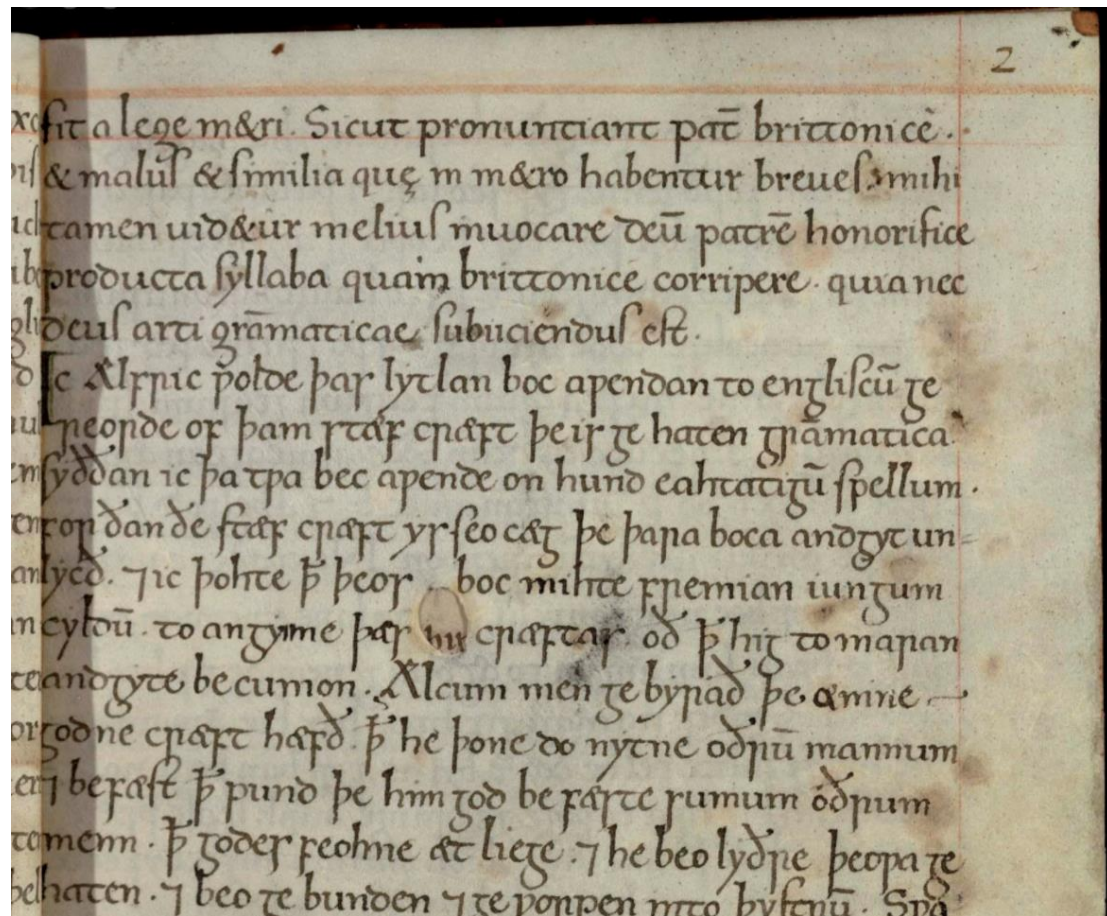 2
sit a lege m&ri. Sicut pronuntiant pat̄ brittonicē.
& malus & similia quę in m&ro habentur breues; mihi
tamen uid&ur melius inuocare deū patrē honorifice
producta syllaba quam brittonice corripere. quia nec
deus arti grāmaticae subiiciendus est.
Ic Ælfric ƿolde þas lytlan boc aƿendan to engliscū ge
reorde of þam stæf cræft þe is ge haten grāmatica.
syððan ic þa tƿa bec aƿende on hund eahtatigū spellum.
for ðan ðe stæf cræft ys seo cæg þe þara boca andgyt un-
lycð. ⁊ ic þohte ꝥ þeos boc mihte fremian iungum
cyldū. to anginne þæs cræftas. oð ꝥ hig to maran
andgyte becumon. Ælcum men ge byrað þe ænine
godne cræft hæfð. ꝥ he þone do nytne oðrū mannum
⁊ befæst ꝥ pund þe him god be fæste sumum oðrum
menn. ꝥ godes feoh ne æt licge. ⁊ he beo lyðre þeoƿa ge
haten. ⁊ beo ge bunden ⁊ ge ƿorpen into þystrū. Sƿa